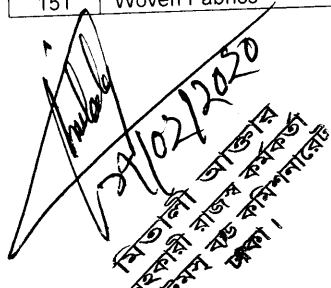 151 Woven Fabrics
২৭/02/2020
মিতালী আক্তার
সহকারী রাজস্ব কর্মকর্তা
কাস্টমস্ বন্ড কমিশনারেট
ঢাকা।